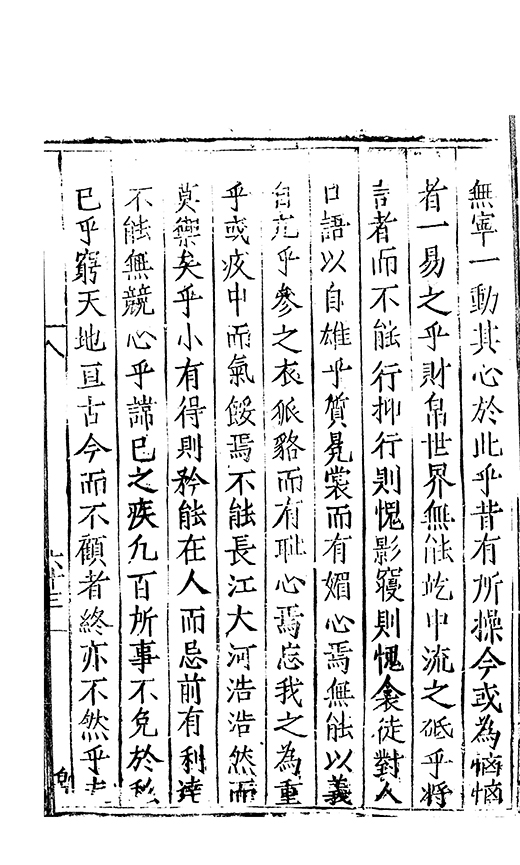 無寧一動其心於此乎昔有所操今或為惱惱
者一易之乎財帛世界無能屹中流之砥乎將
言者而不能行抑行則愧影寢則愧衾徒對人
口語以自雄乎質晃裳而有媚心焉無能以義
自克乎參之衣狐貉而有耻心焉忘我之為重
乎或疚中而氣餒焉不能長江大河浩浩然而
莫禦矣乎小有得則矜能在人而忌前有利達
不能無競心乎諦已之疾凢百所事不免於私
已乎窮天地亘古今而不顧者終亦不然乎夫
八
六十三